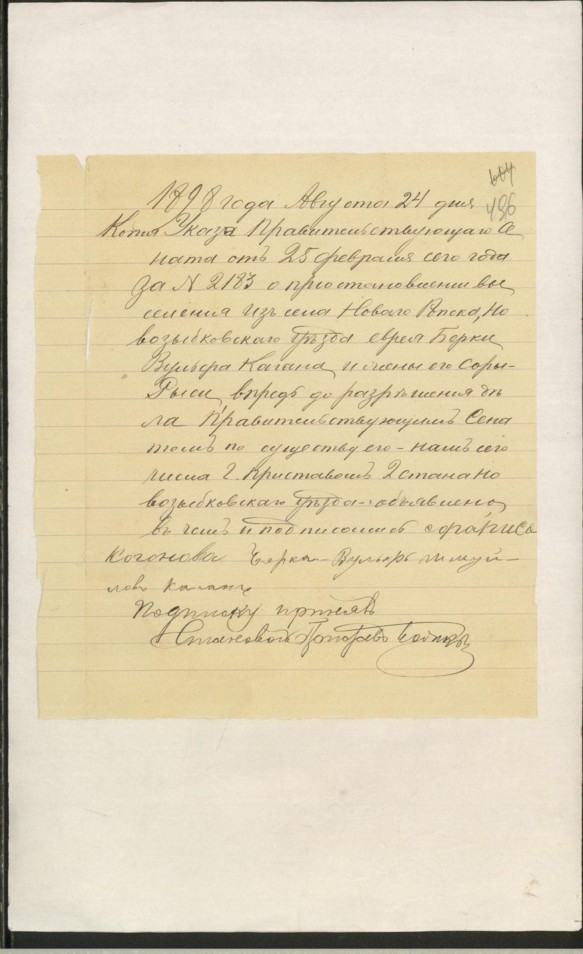 496
1898 года Августа 24 дня
Копія Указа Правительствующаго Се
ната отъ 25 февраля сего года
За N 2183 о пріостановленіи вы
селенія изъ села Новаго Ропска, Но
возыбковскаго Уѣзда еврея Берки
Вульфа Кагана и жены его Соры-
Рыси, впредь до разрѣшенія дѣ
ла Правительствующимъ Сена
томъ по существу его - намъ сего
числа Г. Приставомъ 2 стана Но
возыбковскаго Уѣзда - объявлена,
въ чемъ и подписались
Берка - Вульфъ
Каганъ
Подписку принялъ
Становой Приставъ